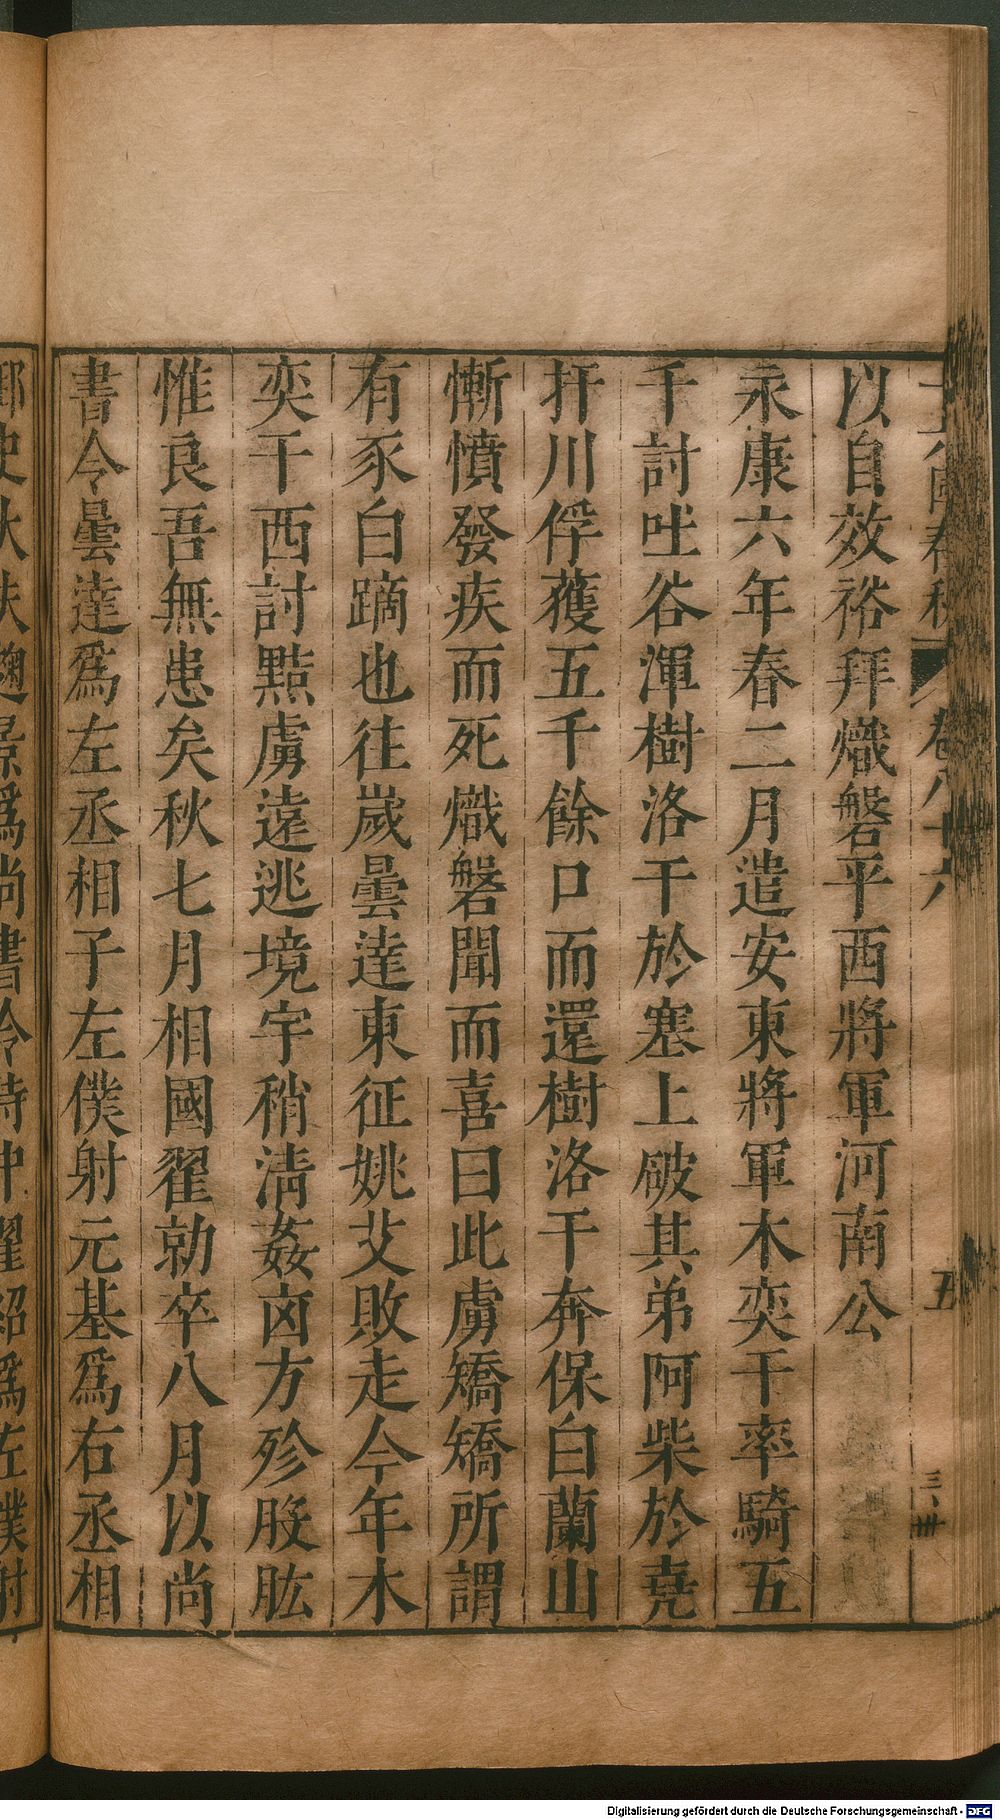 十六國春秋 卷八十六 五
以自效裕拜熾磐平西將軍河南公
永康六年春二月遣安東將軍木奕干率騎五
千討吐谷渾樹洛干於塞上破其弟阿柴於堯
扞川俘獲五千餘口而還樹洛干奔保白蘭山
慚憤發疾而死熾磐聞而喜曰此虜矯矯所謂
有豕白蹢也往歲曇達東征姚艾敗走今年木
奕干西討黠虜遠逃境宇稍淸姦凶方殄股肱
惟良吾無患矣秋七月相國翟勍卒八月以尚
書令曇達爲左丞相子左僕射元基爲右丞相
史 麴景爲尚書令侍中翟紹爲左僕射
Digitalisierung gefördert durch die Deutsche Forschungsgemeinschaft - DFG